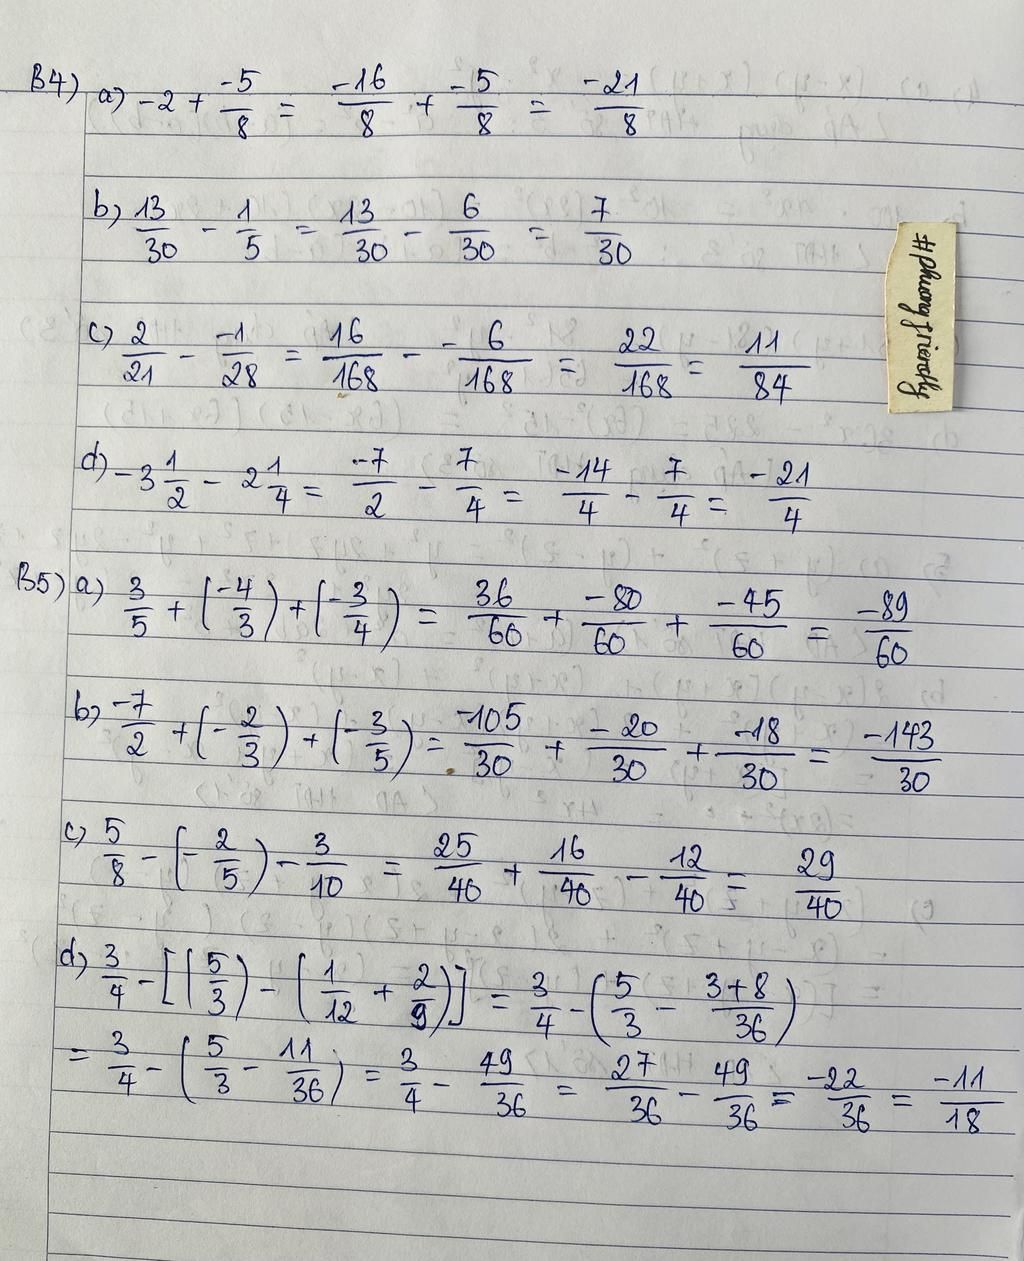 B4) a) -2 + -5/8 = -16/8 + -5/8 = -21/8
b) 13/30 - 1/5 = 13/30 - 6/30 = 7/30
c) 2/21 - -1/28 = 16/168 - -6/168 = 22/168 = 11/84
d) -3 1/2 - 2 1/4 = -7/2 - 7/4 = -14/4 - 7/4 = -21/4
B5) a) 3/5 + (-4/3) + (-3/4) = 36/60 + -80/60 + -45/60 = -89/60
b) -7/2 + (-2/3) + (-3/5) = -105/30 + -20/30 + -18/30 = -143/30
c) 5/8 - (-2/5) - 3/10 = 25/40 + 16/40 - 12/40 = 29/40
d) 3/4 - [(5/3) - (1/12 + 2/9)] = 3/4 - (5/3 - 3+8/36)
= 3/4 - (5/3 - 11/36) = 3/4 - 49/36 = 27/36 - 49/36 = -22/36 = -11/18
#phuongfriendly